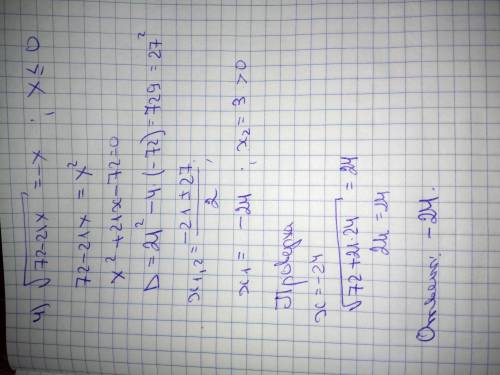 4) √72-21x = -x ; x ≤ 0
72-21x = x²
x²+21x-72=0
D = 21² - 4(-72) = 729 = 27²
x₁,₂ = -21±27 / 2 ;
x₁ = -24 ; x₂ = 3 > 0
Проверка
x = -24
√72+21·24 = 24
24 = 24
Ответ: -24.